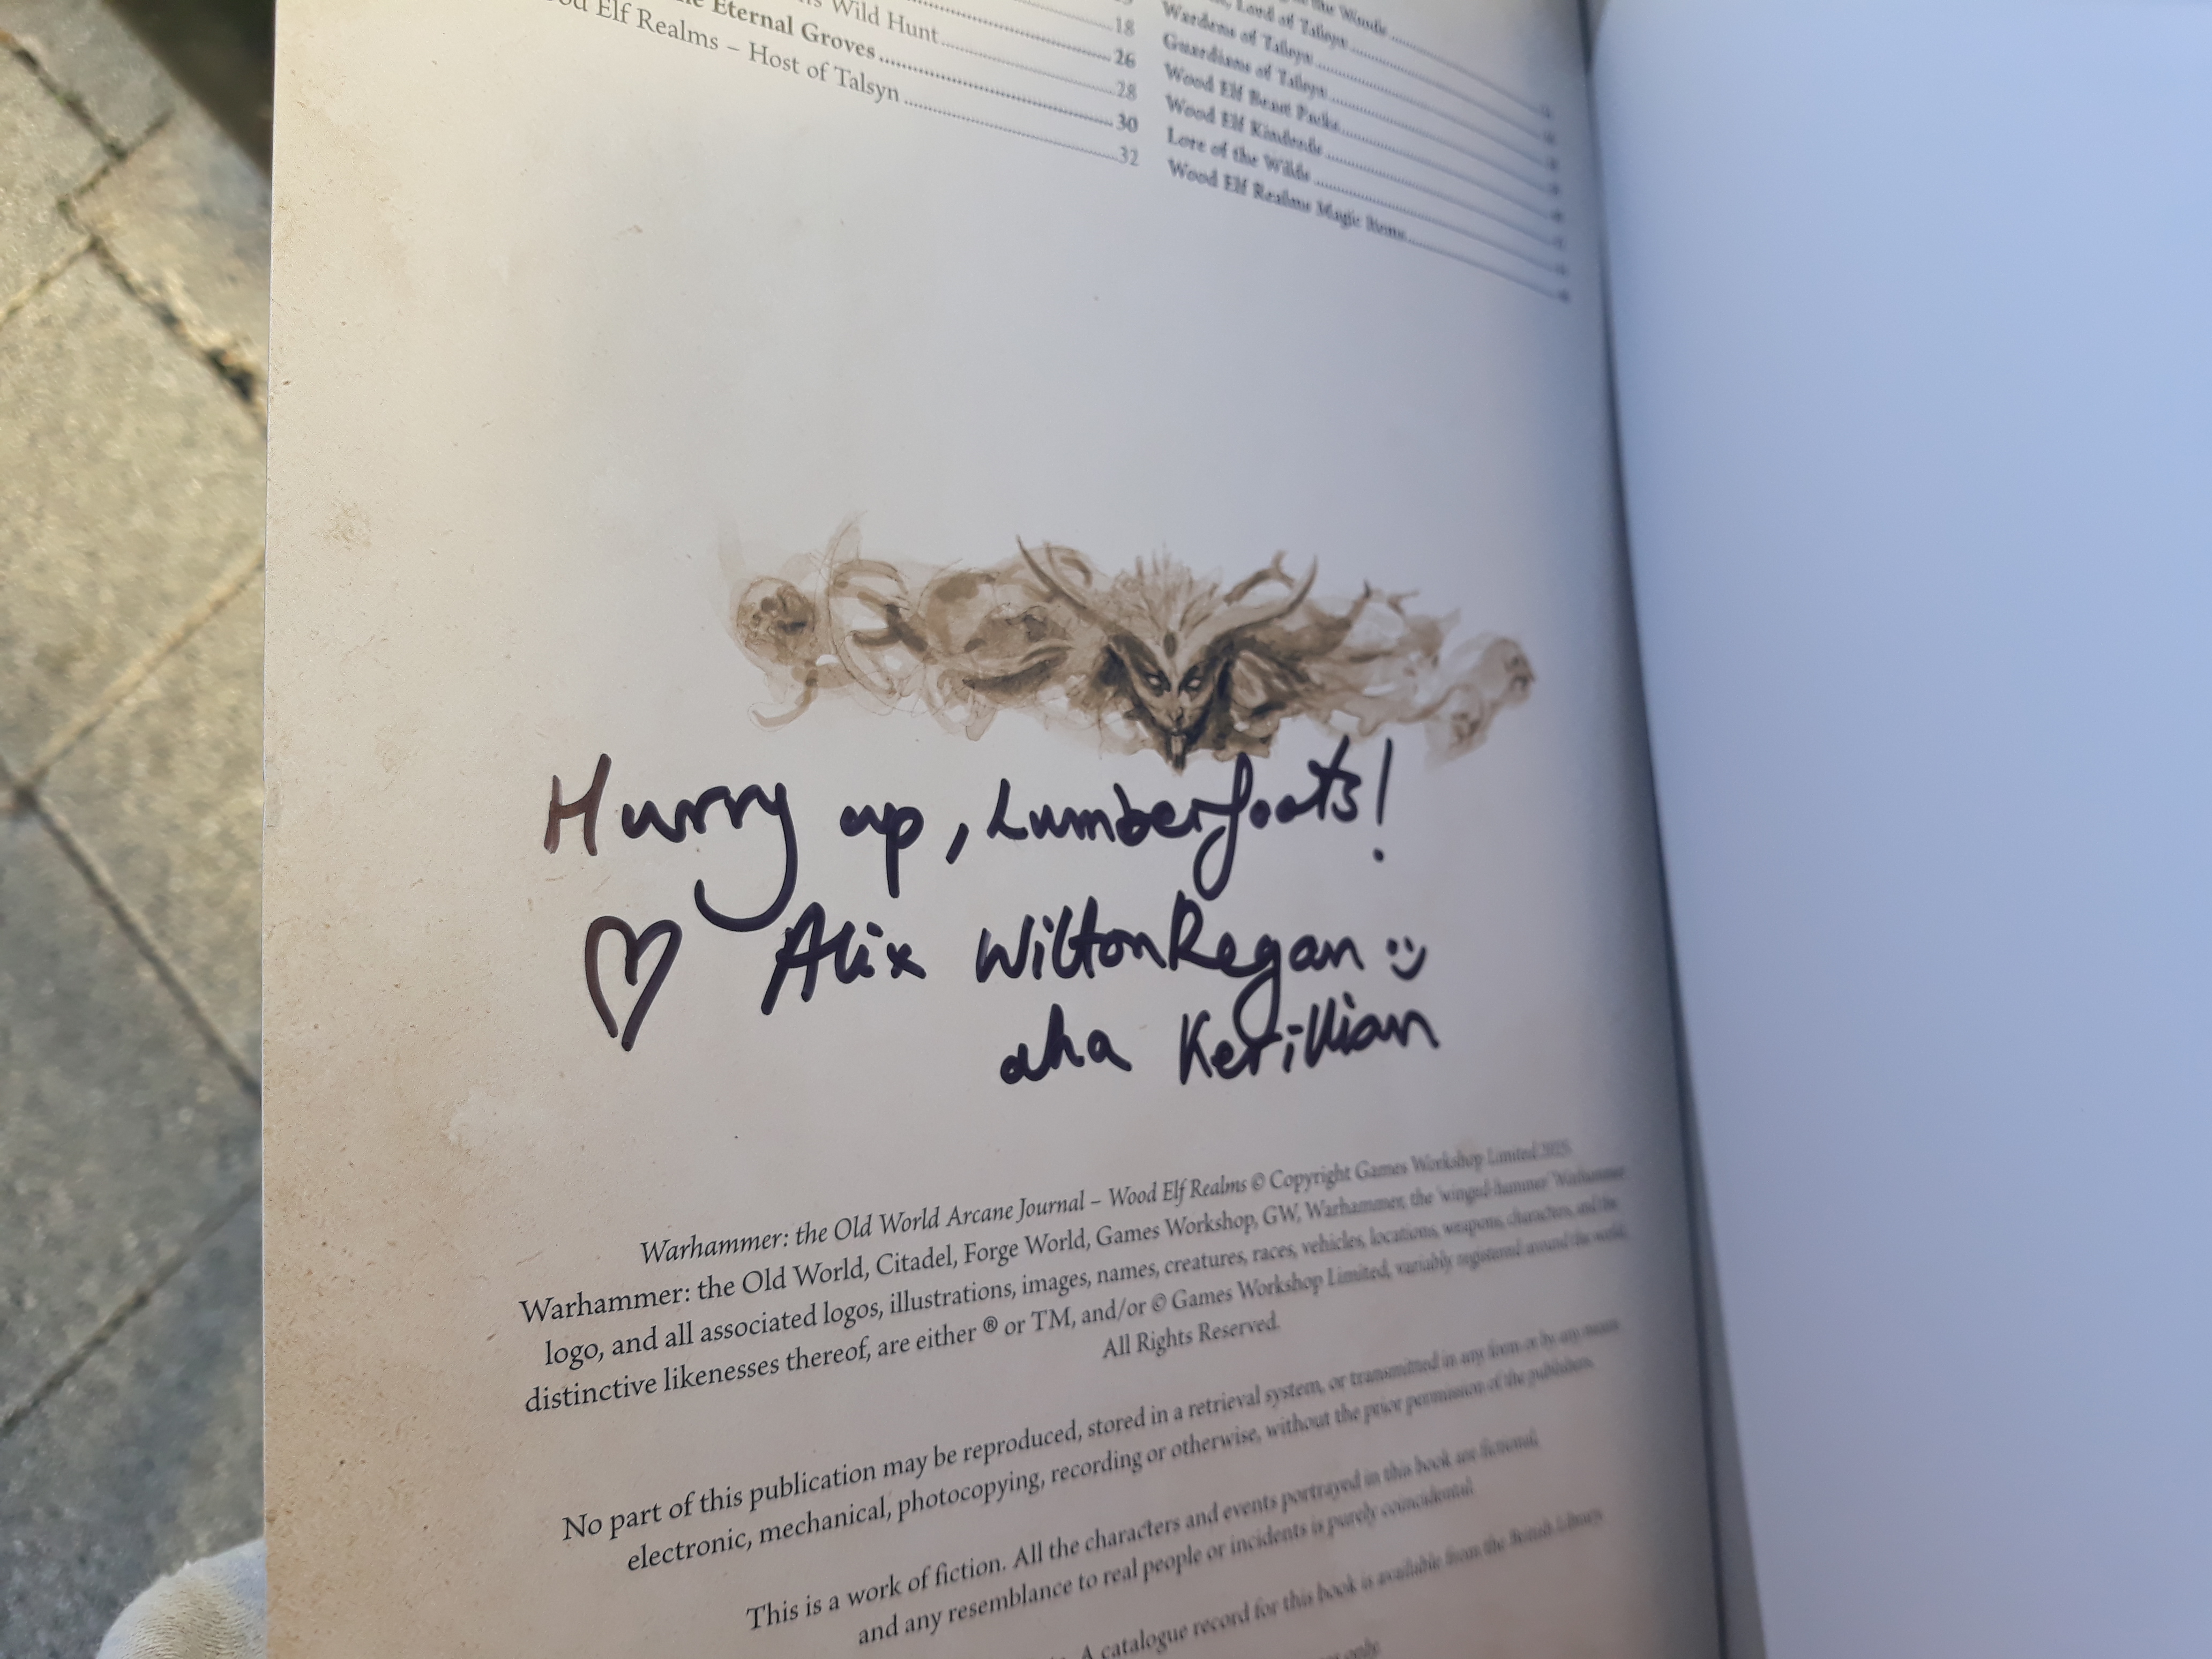 Wild Hunt
18
Eternal Groves
26
Elf Realms – Host of Talsyn
28
30
32
Lord of Talsyn
Wardens of Talsyn
Guardians of Talsyn
Wood Elf Beast Packs
Wood Elf Kindreds
Lore of the Wilds
Wood Elf Realms Magic Items
Hurry up, Lumberfoots!
♡ Alix Wilton Regan :)
aka Kerillian
Warhammer: the Old World Arcane Journal – Wood Elf Realms © Copyright Games Workshop Limited 2025.
Warhammer: the Old World, Citadel, Forge World, Games Workshop, GW, Warhammer, the 'winged-hammer' Warhammer
logo, and all associated logos, illustrations, images, names, creatures, races, vehicles, locations, weapons, characters, and the
distinctive likenesses thereof, are either ® or TM, and/or © Games Workshop Limited, variably registered around the world.
All Rights Reserved.
No part of this publication may be reproduced, stored in a retrieval system, or transmitted in any form or by any means
electronic, mechanical, photocopying, recording or otherwise, without the prior permission of the publishers.
This is a work of fiction. All the characters and events portrayed in this book are fictional,
and any resemblance to real people or incidents is purely coincidental.
A catalogue record for this book is available from the British Library.
only.